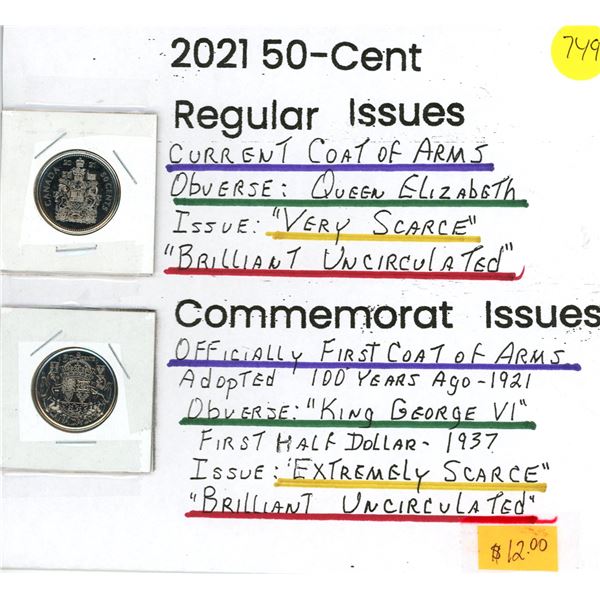 2021 50-Cent
749
Regular Issues
CURRENT COAT OF ARMS
OBVERSE: QUEEN ELIZABETH
ISSUE: "VERY SCARCE"
"BRILLIANT UNCIRCULATED"
CANADA 50 CENTS
Commemorat Issues
OFFICIALLY FIRST COAT OF ARMS
ADOPTED 100 YEARS AGO-1921
OBVERSE: "KING GEORGE VI"
FIRST HALF DOLLAR- 1937
ISSUE: "EXTREMELY SCARCE"
"BRILLIANT UNCIRCULATED"
$12.00